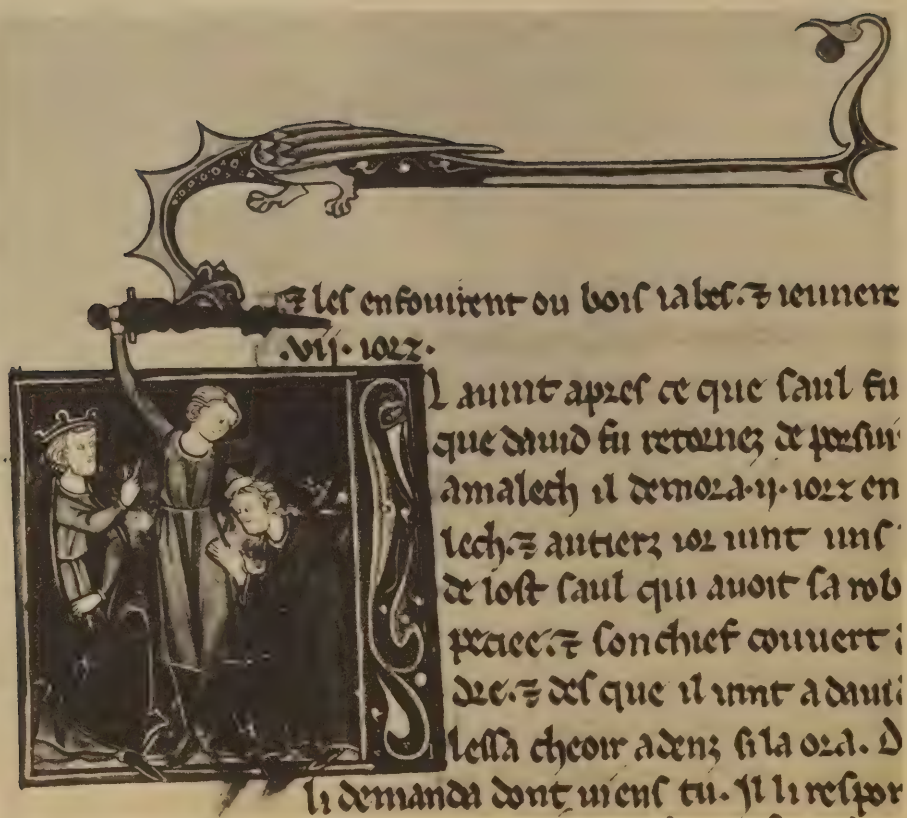 ⁊ les enfouirent ou bois iabes. ⁊ ieunere
.vij. iorz.
L auint apres ce que saul fu
que dauid fu retornez de porsiu
amalech il demora .ij. iorz en
lech. ⁊ autierz ior uint uns
de lost saul qui auoit sa rob
peciee. ⁊ son chief couuert
dre. ⁊ des que il uint a daui
lessa cheoir adenz si la ora. D
li demanda dont uiens tu. Il li respon